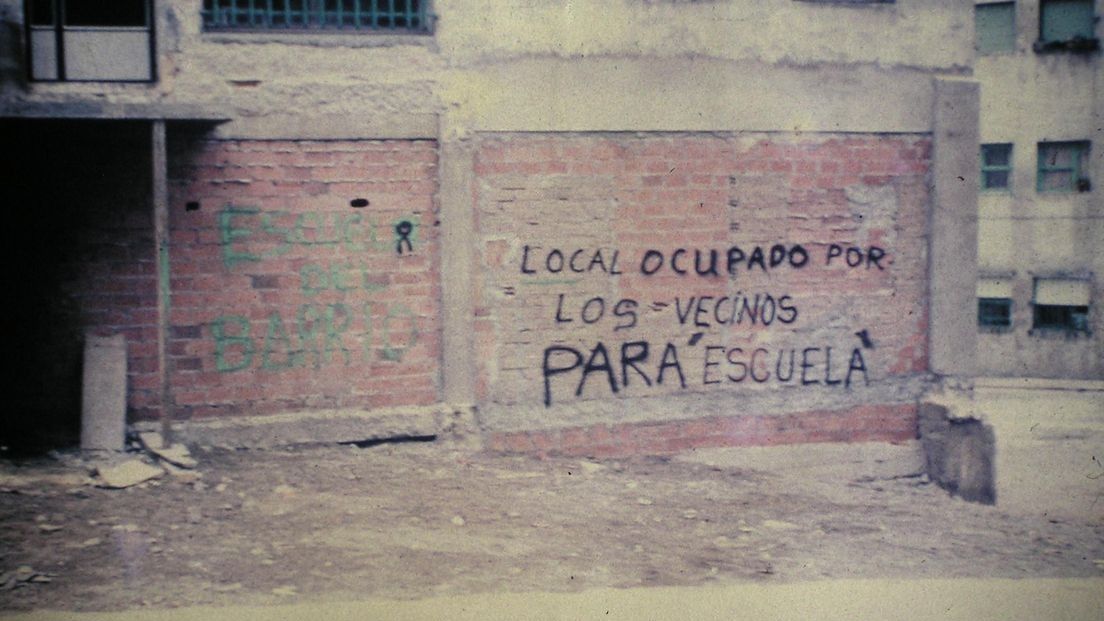 ESCUELA
DEL
BARRIO
LOCAL OCUPADO POR
LOS = VECINOS
PARA "ESCUELA"